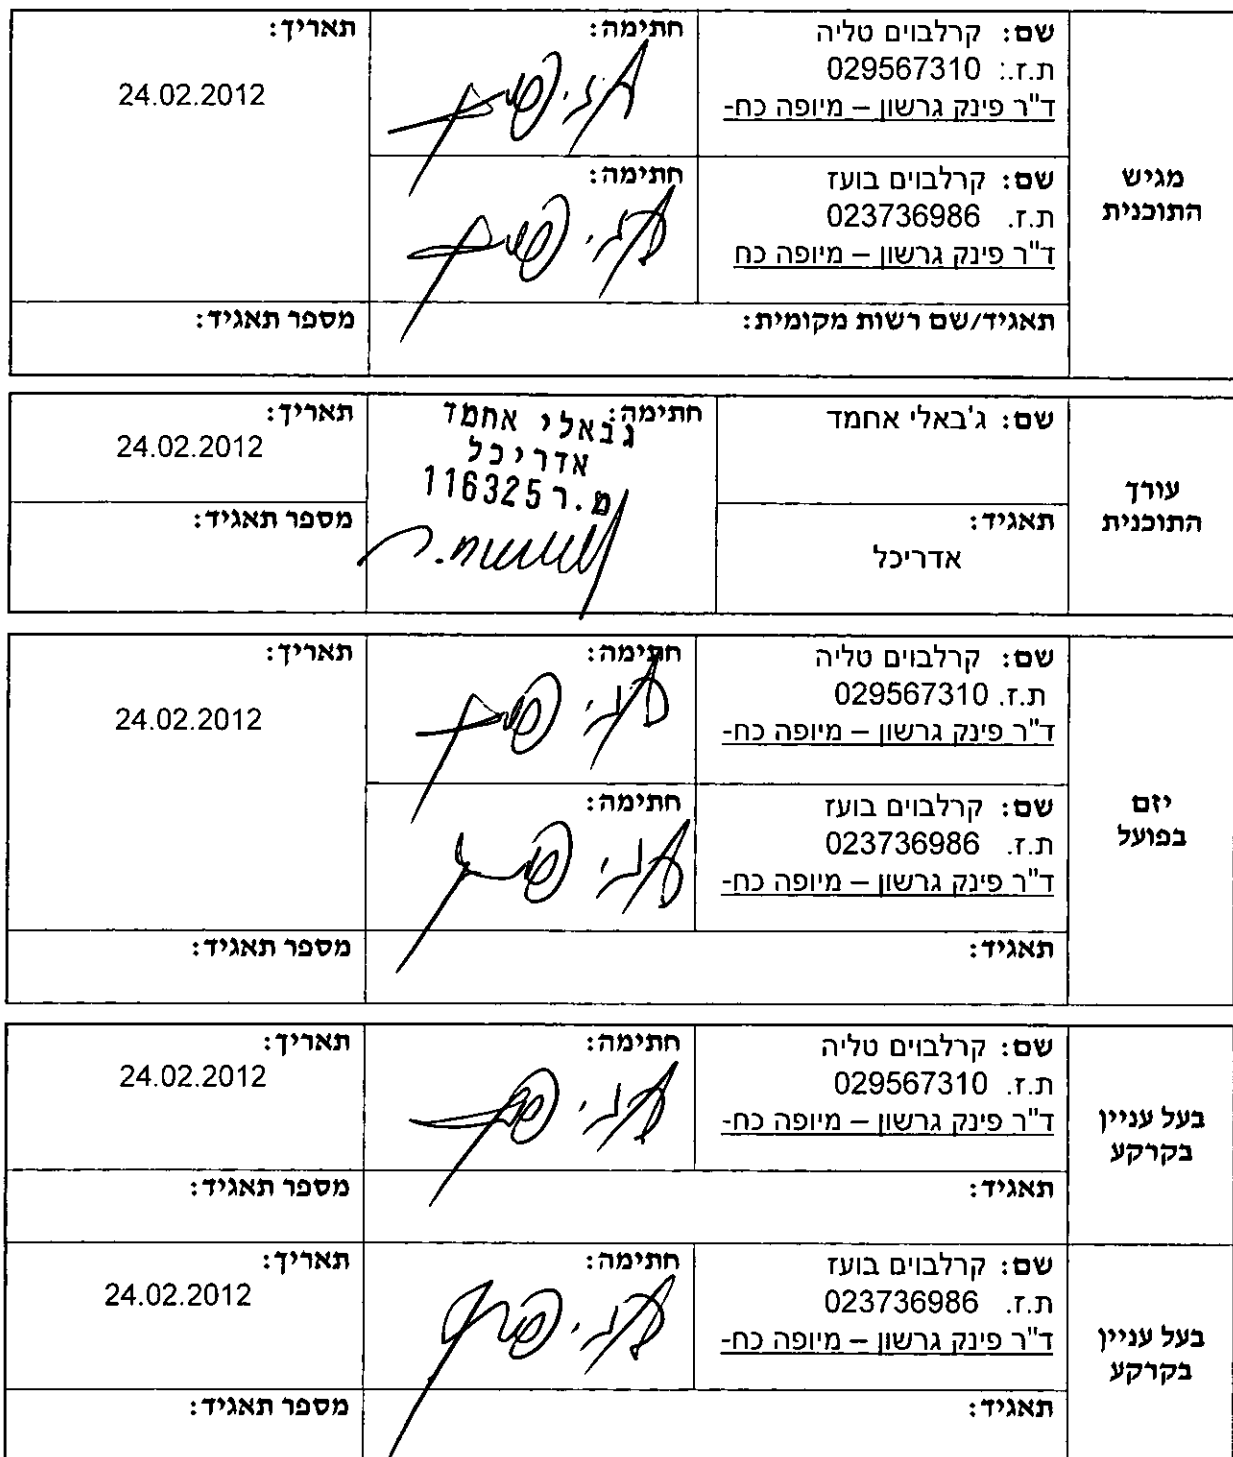 מגיש
התוכנית
שם: קרלבוים טליה
ת.ז.: 029567310
ד"ר פינק גרשון – מיופה כח-
חתימה:
תאריך:
24.02.2012
שם: קרלבוים בועז
ת.ז. 023736986
ד"ר פינק גרשון – מיופה כח
חתימה:
תאגיד/שם רשות מקומית:
מספר תאגיד:
עורך
התוכנית
שם: ג'באלי אחמד
חתימה:
ג'באלי אחמד
אדריכל
מ.ר 116325
תאריך:
24.02.2012
תאגיד:
אדריכל
מספר תאגיד:
יזם
בפועל
שם: קרלבוים טליה
ת.ז. 029567310
ד"ר פינק גרשון – מיופה כח-
חתימה:
תאריך:
24.02.2012
שם: קרלבוים בועז
ת.ז. 023736986
ד"ר פינק גרשון – מיופה כח-
חתימה:
תאגיד:
מספר תאגיד:
בעל עניין
בקרקע
שם: קרלבוים טליה
ת.ז. 029567310
ד"ר פינק גרשון – מיופה כח-
חתימה:
תאריך:
24.02.2012
תאגיד:
מספר תאגיד:
בעל עניין
בקרקע
שם: קרלבוים בועז
ת.ז. 023736986
ד"ר פינק גרשון – מיופה כח-
חתימה:
תאריך:
24.02.2012
תאגיד:
מספר תאגיד: